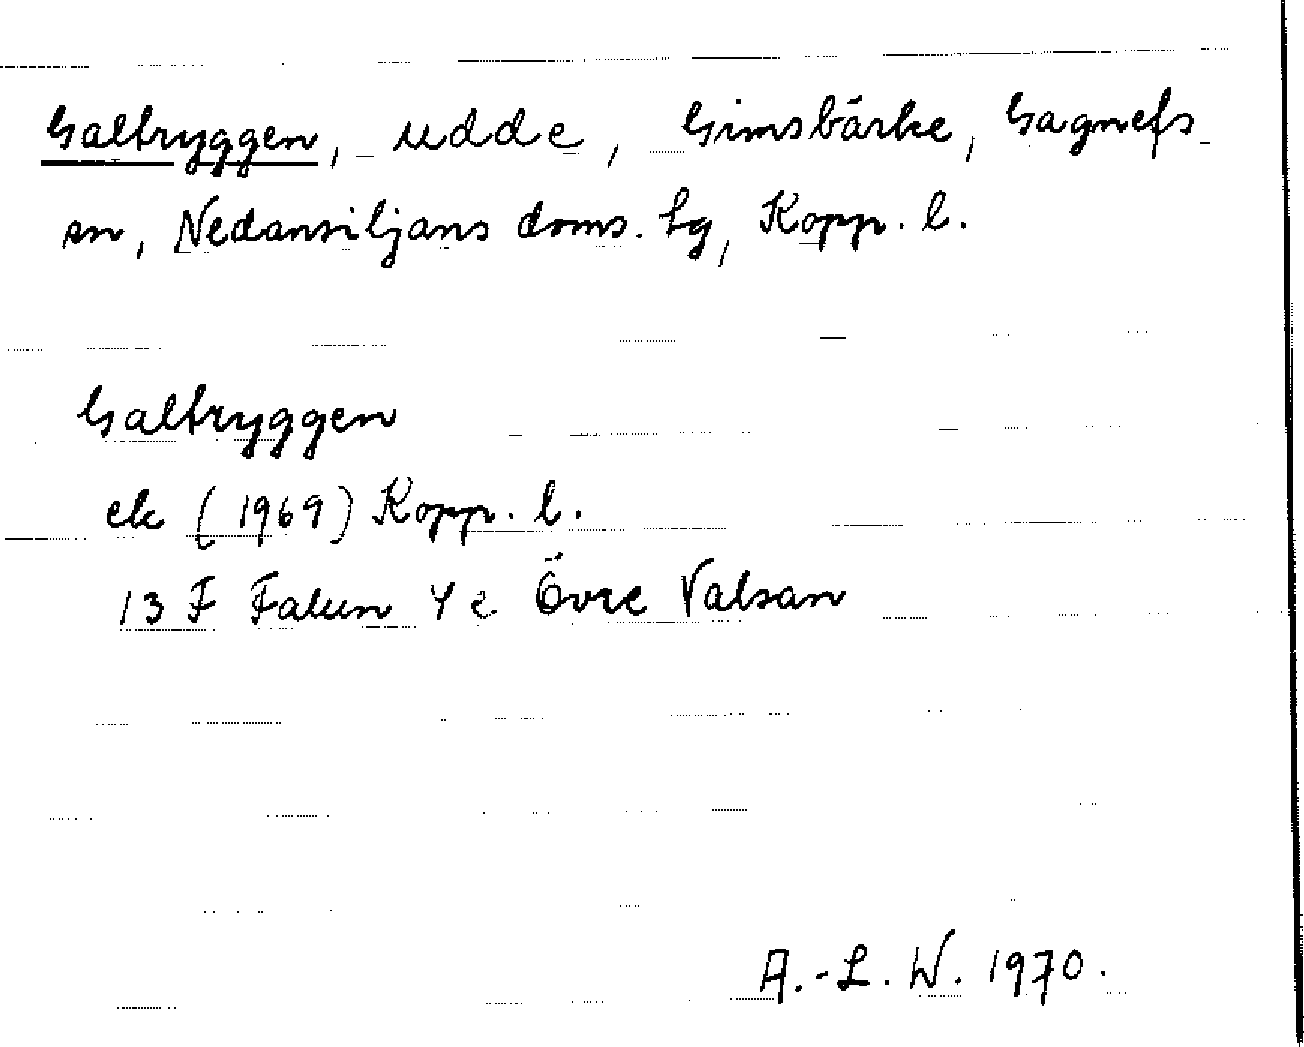 Galtryggen, udde, Gimsbärke, Gagnefs
sn, Nedansiljans doms. tg, Kopp. l.
Galtryggen
ek (1969) Kopp. l.
13 F Falun 4 e Övre Valsan
A.-L. W. 1970.